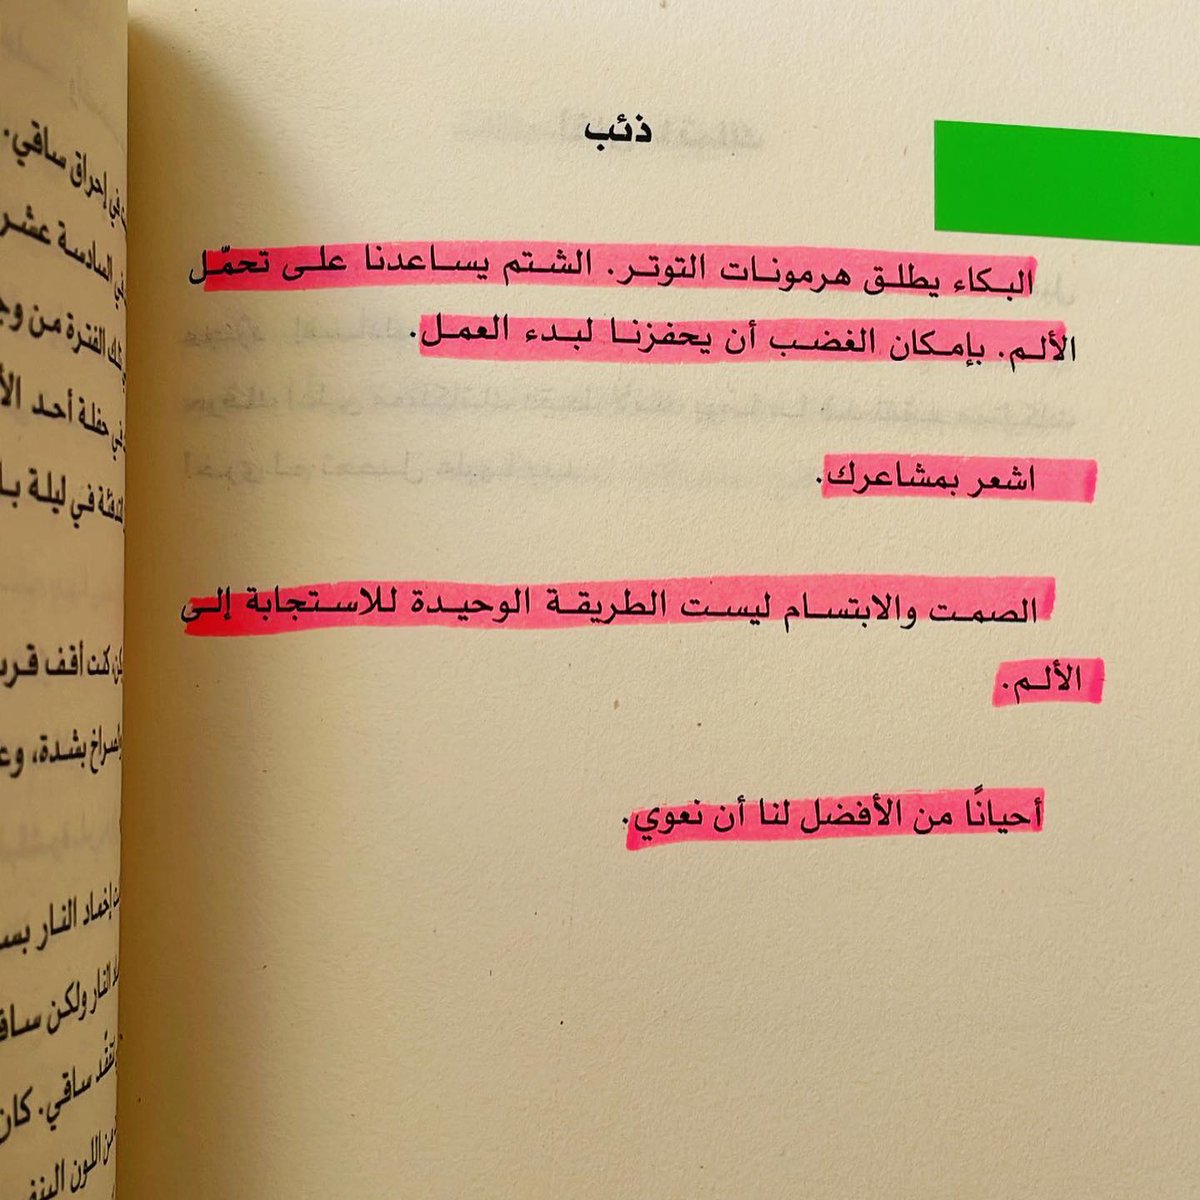 ذئب
البكاء يطلق هرمونات التوتر. الشتم يساعدنا على تحمّل
الألم. بإمكان الغضب أن يحفزنا لبدء العمل.
اشعر بمشاعرك.
الصمت والابتسام ليست الطريقة الوحيدة للاستجابة إلى
الألم.
أحيانًا من الأفضل لنا أن نعوي.
في إحراق ساقي.
السادسة عشر
الفترة من
في حفلة أحد
في ليلة
كنت أقف
بشدة،
إخماد النار
النار ولكن
ساقي. كان
اللون